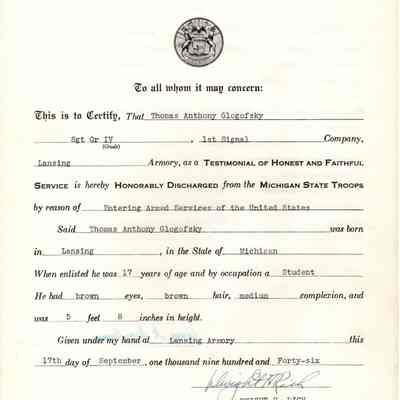 To all whom it may concern:
This is to Certify, That Thomas Anthony Glogofsky
Sgt Gr IV , 1st Signal Company,
(Grade)
Lansing Armory, as a TESTIMONIAL OF HONEST AND FAITHFUL
SERVICE is hereby HONORABLY DISCHARGED from the MICHIGAN STATE TROOPS
by reason of Entering Armed Services of the United States
Said Thomas Anthony Glogofsky was born
in Lansing , in the State of Michigan
When enlisted he was 17 years of age and by occupation a Student
He had brown eyes, brown hair, medium complexion, and
was 5 feet 8 inches in height.
Given under my hand at Lansing Armory this
17th day of September , one thousand nine hundred and Forty-six
Dwight H Rich